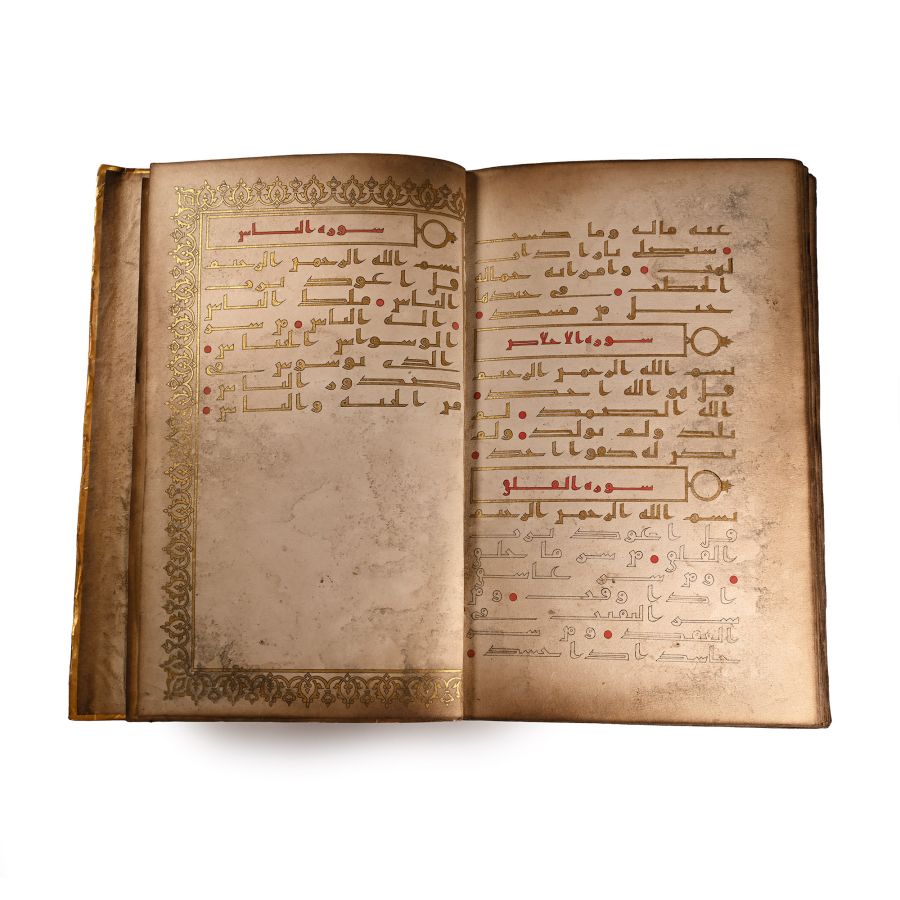 عنه ماله وما كسب
سيصلى نارا ذات
لهب وامراته حماله
الحطب في جيدها
حبل من مسد
سوره الاخلاص
بسم الله الرحمن الرحيم
قل هو الله احد
الله الصمد لم
يلد ولم يولد ولم
يكن له كفوا احد
سوره الفلق
بسم الله الرحمن الرحيم
قل اعوذ برب
الفلق من شر ما خلق
ومن شر غاسق
اذا وقب ومن
شر النفثت في
العقد ومن شر
حاسد اذا حسد
سوره الناس
بسم الله الرحمن الرحيم
قل اعوذ برب
الناس ملك الناس
اله الناس من شر
الوسواس الخناس
الذي يوسوس في
صدور الناس
من الجنه والناس